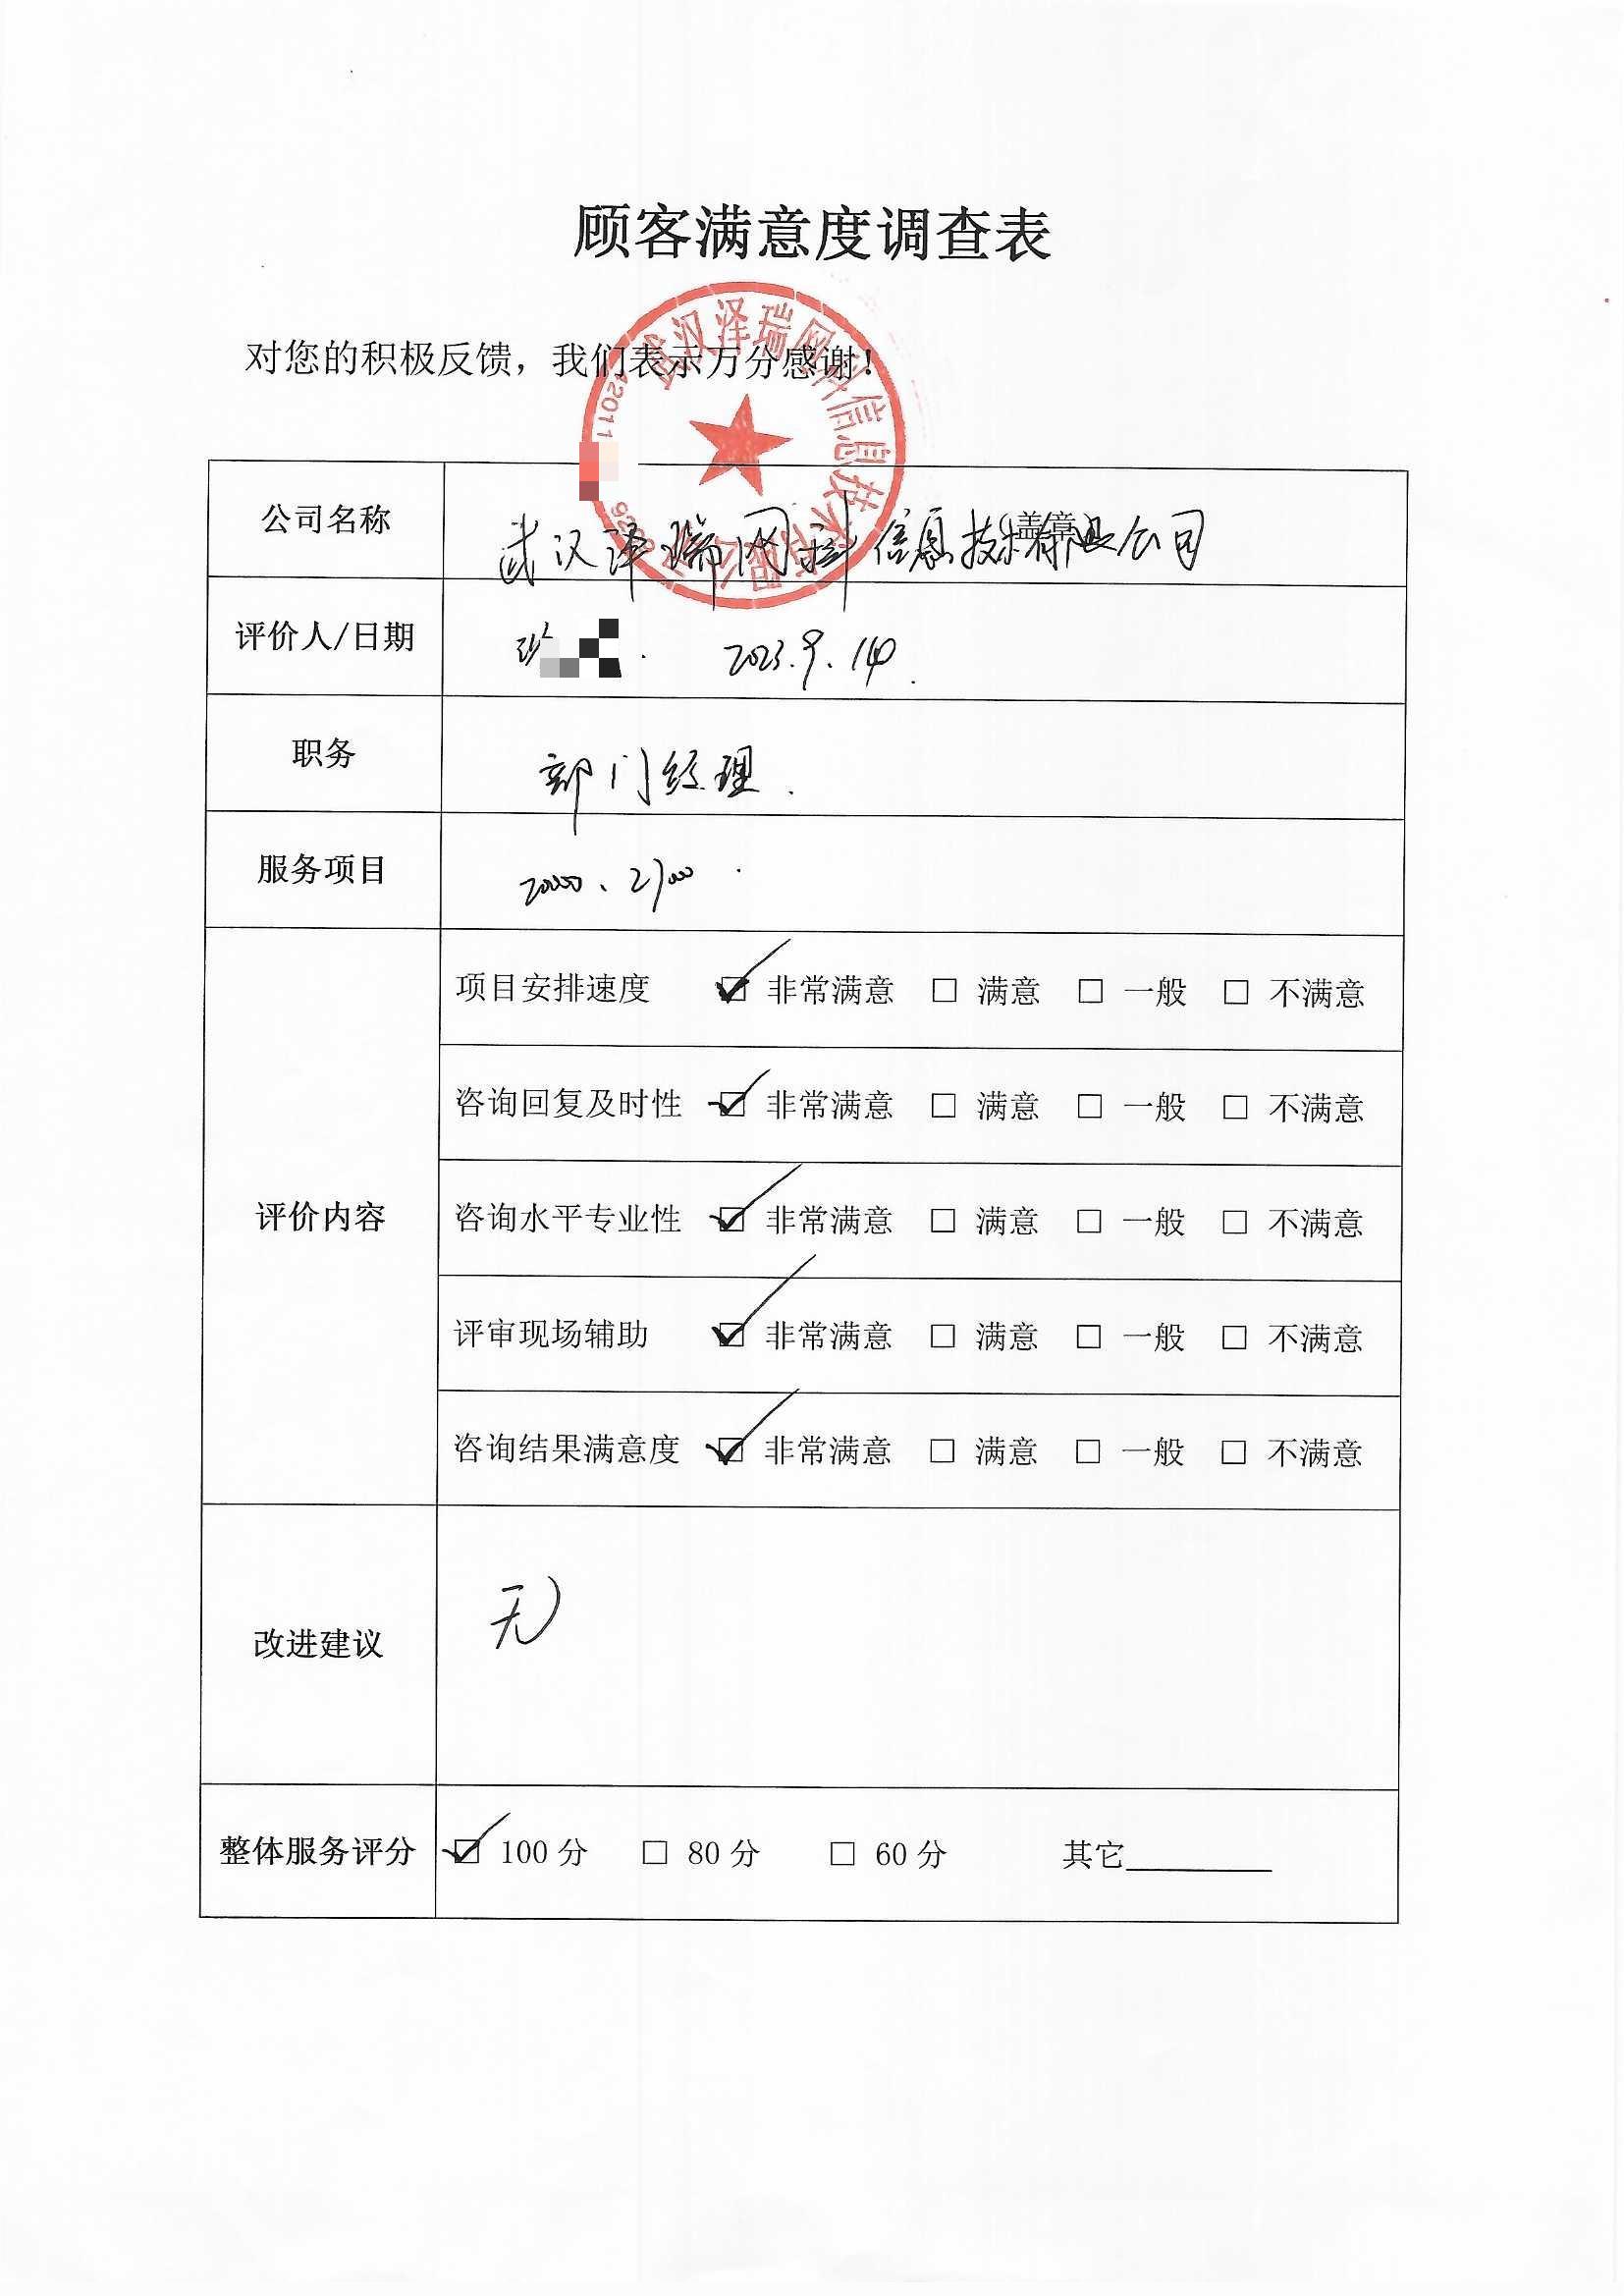 顾客满意度调查表
对您的积极反馈，我们表示万分感谢！
武汉泽瑞网科信息技术有限公司
42011
公司名称 武汉泽瑞网科信息技术有限公司 （盖章）
评价人/日期 2023.9.14.
职务 部门经理.
服务项目 20000、27000.
评价内容
项目安排速度 ☑ 非常满意 □ 满意 □ 一般 □ 不满意
咨询回复及时性 ☑ 非常满意 □ 满意 □ 一般 □ 不满意
咨询水平专业性 ☑ 非常满意 □ 满意 □ 一般 □ 不满意
评审现场辅助 ☑ 非常满意 □ 满意 □ 一般 □ 不满意
咨询结果满意度 ☑ 非常满意 □ 满意 □ 一般 □ 不满意
改进建议 无
整体服务评分 ☑ 100 分 □ 80 分 □ 60 分 其它________